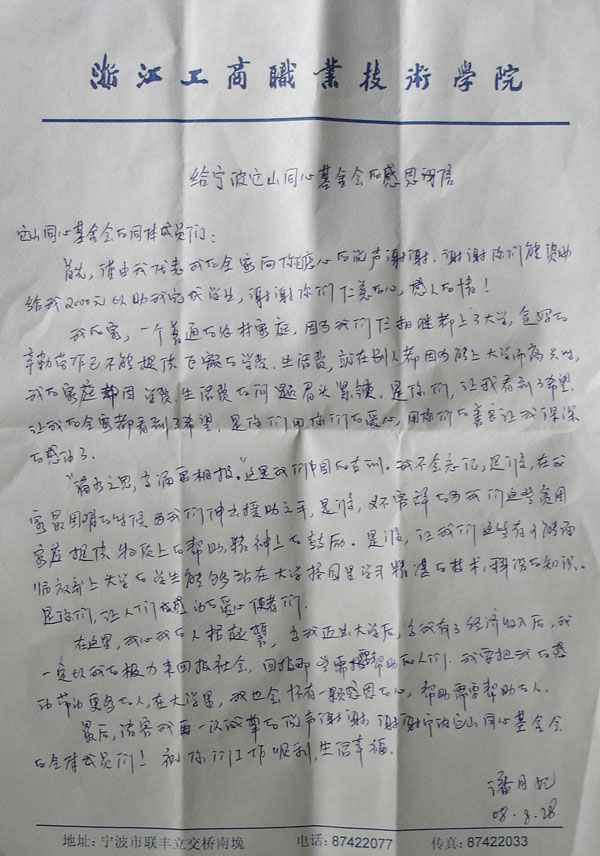 浙江工商職業技術學院
给宁波它山同心基金会的感恩谢信
它山同心基金会的同体成员们：
首先，僅由我代表我的全家向你们衷心的说声谢谢．谢谢你们能资助
给我2000元以助我完成学业，谢谢你们仁善的心，感人的情！
我的家，一个普通的农村家庭，因为我们仨相继都上了大学，父母的
辛勤劳作已不能提供飞涨的学费、生活费，站在别人都因为能上大学而高兴时，
我的家庭却因学费、生活费的问题眉头紧锁．是你们，让我看到了希望，
让我的全家都看到了希望．是你们用你们的爱心，用你们的善意让我深深
的感动了．
“滴水之恩，当涌泉相报。”这是我们中国的古训．我不会忘记，是谁，在我
家最困难的时候为我们伸出援助之手，是谁，义不容辞的为我们这些贫困
家庭提供物质上的帮助，精神上的鼓励．是谁，让我们这些有
临放弃上大学的学生能够站在大学校园里学习精湛的技术，科学的知识．
是你们，让人们感动的爱心使者们．
在这里，我以我的人格起誓，当我迈出大学后，当我有了经济收入后，我
一定以我的极力来回报社会．回报那些需要帮助的人们．我要把我的感
动带给更多的人，在大学里，我也会怀有一颗感恩的心，帮助需要帮助的人．
最后，请容我再一次诚挚的说声谢谢，谢谢宁波它山同心基金会
的全体成员们！祝你们工作顺利，生活幸福．
潘月妃
08.8.28
地址：宁波市联丰立交桥南堍 电话：87422077 传真：87422033